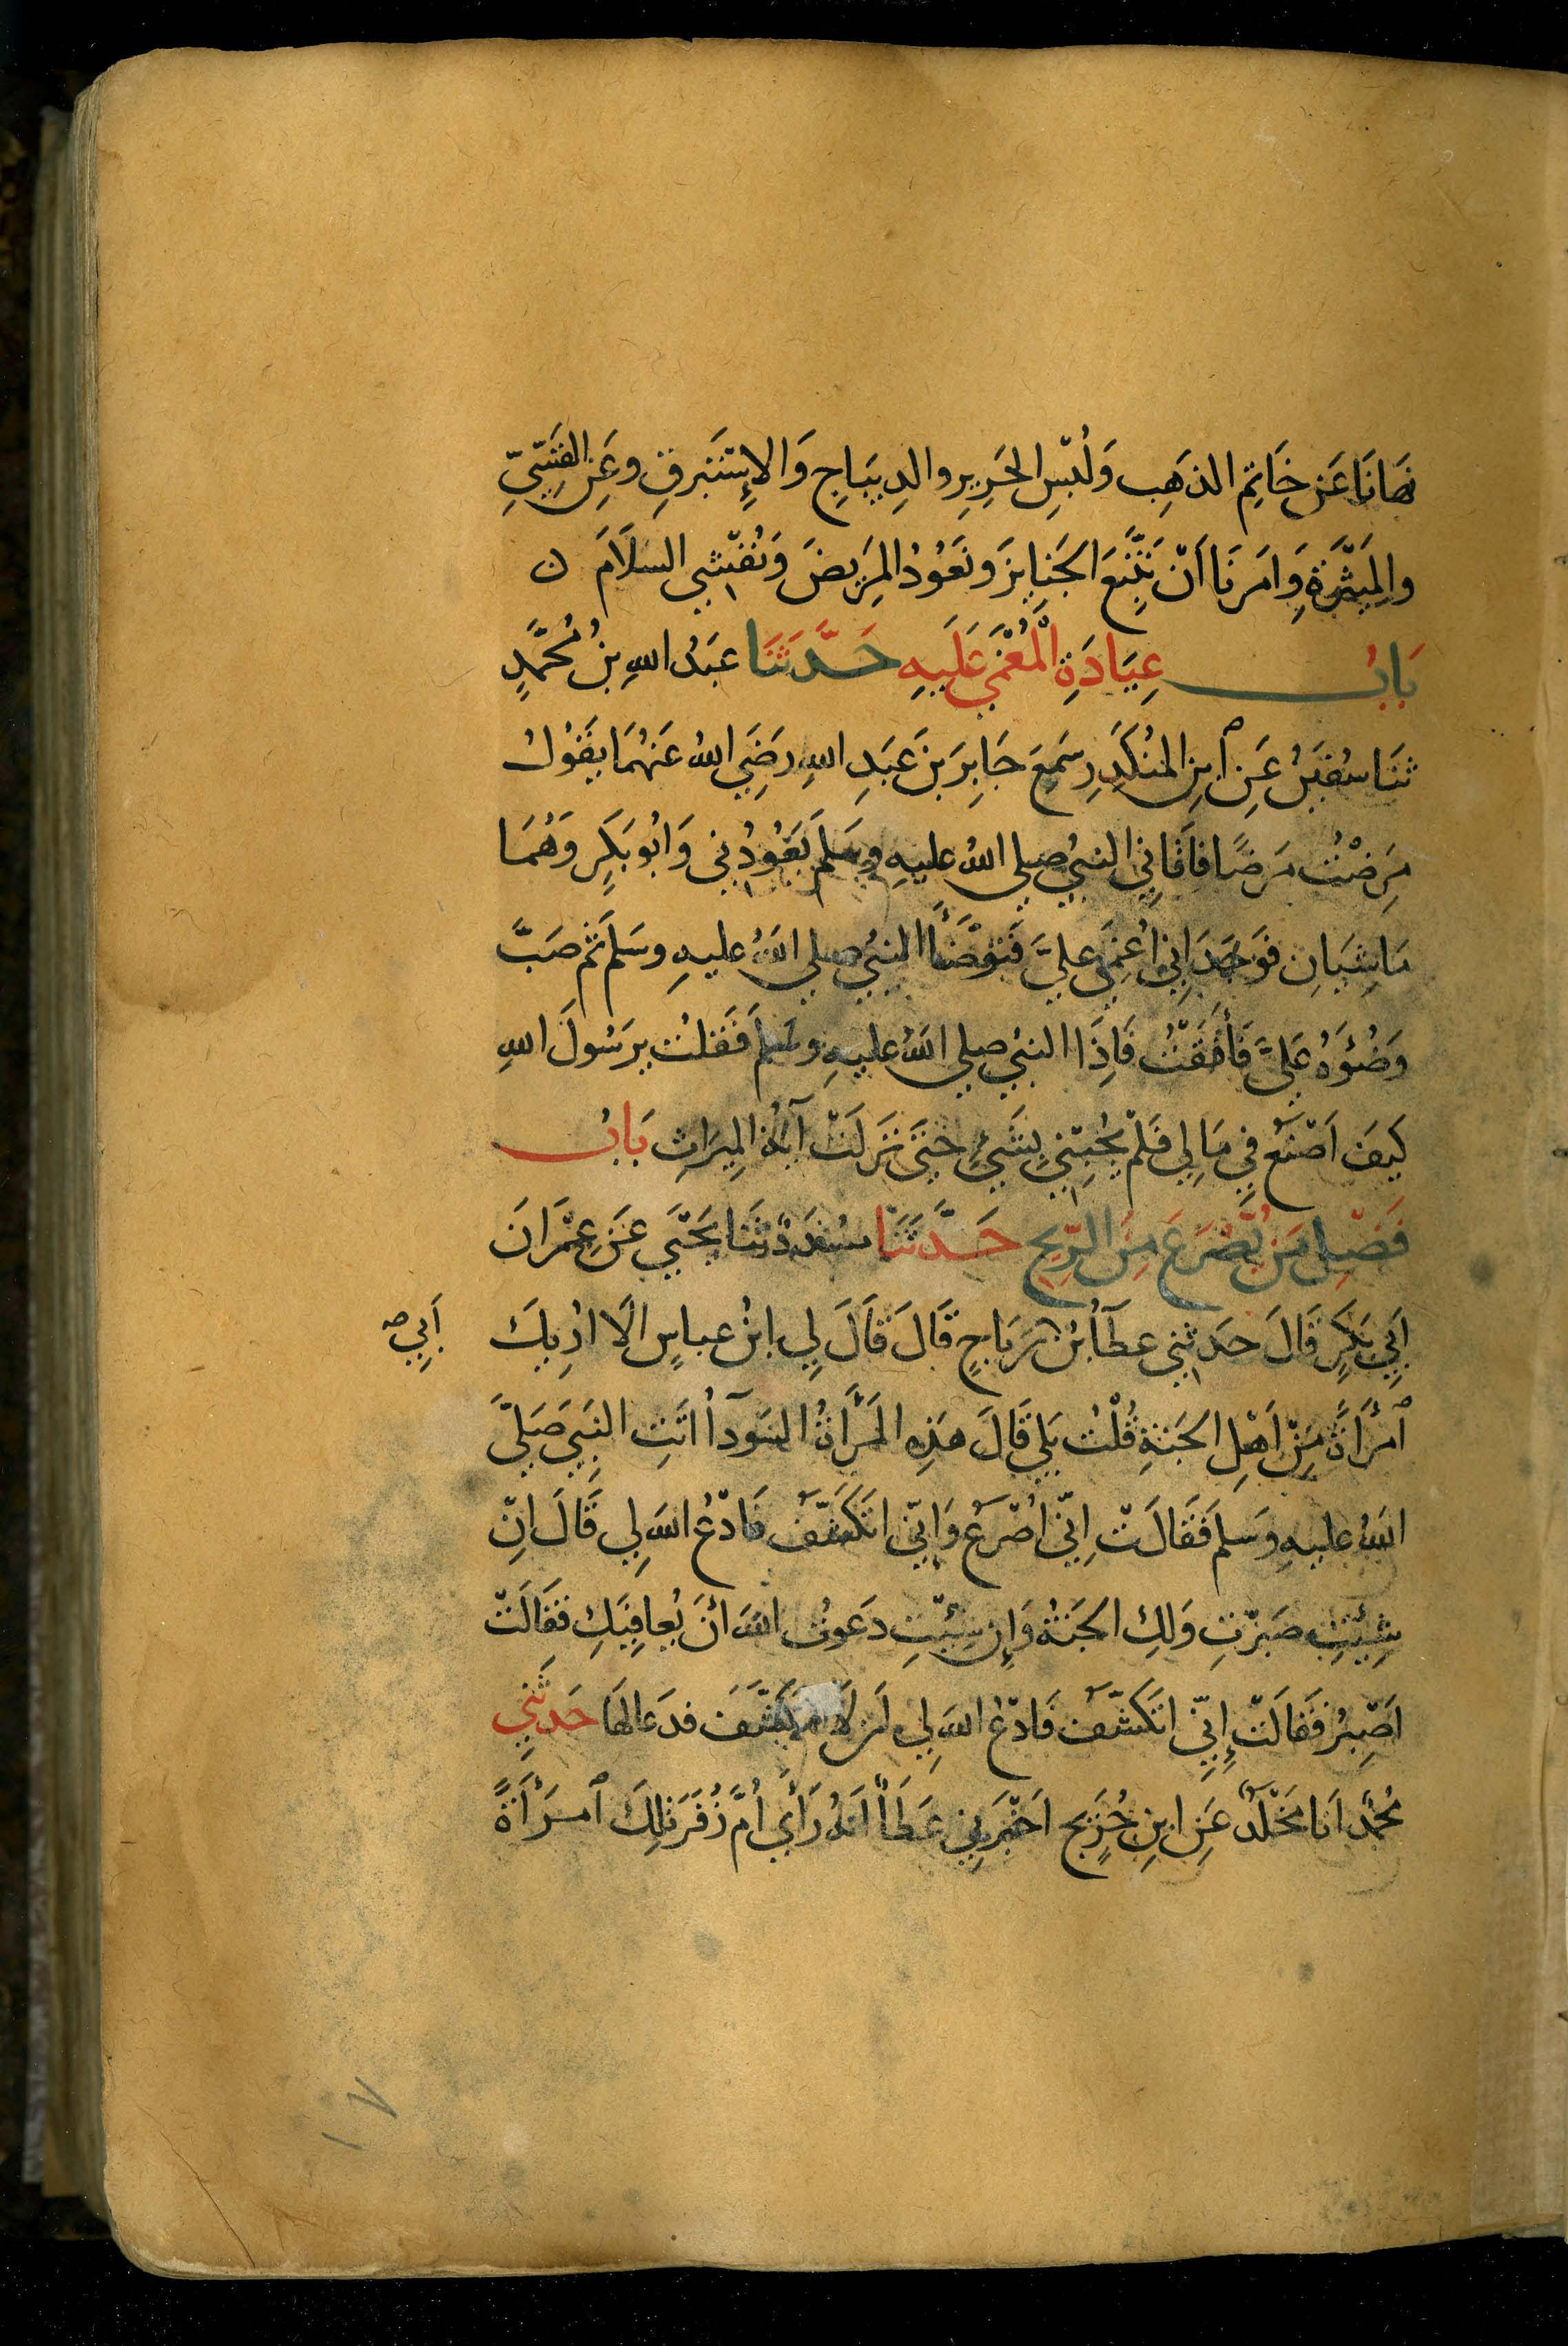 نَهَانَا عَنْ خَاتِمِ الذهَبِ وَلُبْسِ الحَرِيرِ والدِيبَاجِ وَالإِسْتَبْرقِ وعَنِ القَسِّيِّ
والمِيْثَرَةِ وَامَرَنَا اَنْ نَتّبَعَ الجَنايزَ ونَعُوْدُ المَرِيضَ وَنُفْشِي السلَامَ ن
بَابُ عِيَادَةِ الْمُغْمَى عَلَيهِ حَدَّثَنَا عبَدُ اللهِ بنُ مُحمَّدٍ
ثنَا سُفيَنُ عَنِ ٱبنِ المُنكَدِرِ سَمِعَ جَابِرَ بنَ عَبَدِ اللهِ رَضِيَ اللهُ عَنهُمَا يقَوُلُ
مَرِضْتُ مَرَضًا فاَتَانِي النبيُ صلى اللهُ عليهِ وسَلمَ يَعُوْدُنِي وَابُو بَكرٍ وَهُمَا
مَاشِيَانِ فوَجَدَانِي اُغمِيَ عليَّ فَتَوَضَّأَ النبيُ صلى اللهُ عليهِ وسَلمَ ثم صَبَّ
وَضُوَءهُ عَلىَّ فَأفَقَتُ فَاِذَا النبيُ صلى اللهُ عليهِ وسَلمَ فَقَلتُ يرَسُولَ اللهِ
كيَفَ اَصْنَعُ فِي مَالِي فَلمْ يُجْبِنيِ بِشَيْءٍ حَتَى نزَلَتْ آيةُ المِيرَاثِ بَابُ
فَضْلِ مَن يُصْرَعُ مِنَ الرِيحِ حَدَّثَنَا مسَدَدٌ ثنَا يَحْيَي عَنِ عِمْرَانَ
اَبِي بَكرٍ قَالَ حدَثنِي عطَآءُ بنُ رَبَاحٍ قَالَ قَالَ لِي ابنُ عباسٍ الَا اُرِيكَ
اَبِي صح
ٱمرَأَةً مِنْ اَهْلِ الجَنةِ قُلْتُ بَلي قَالَ هَذِهِ المَرْأَةُ السَودآءُ اتَتِ النَبِيَ صَلىَّ
اللهُ عليهِ وَسَلم فَقَالَتْ اِنّي اُصْرَعُ وَانّي اتَكشَّفُ فَادْعُ اللهَ لي قَالَ اِنْ
شِئْتِ صَبَرْتِ وَلكِ الجَنةُ وَإِن شِئتِ دَعوتُ اللهَ اَنْ يُعافِيَكِ فَقَالَتْ
اَصْبِرُ فَقَالَتْ إِنِّي اتَكَشَّفُ فَادْعُ اللهَ لِي اَن لَا اَتكشَّفَ فدَعَا لهَا حَدثنِي
مُحمَّد اَنَا مَخْلَدٌ عَنِ ابنِ جُرَيج اَخْبَرَنِي عَطَآءٌ اَنهُ رَأَي اُمَّ زُفَرَ تِلكَ ٱمرَأَةً
١٧